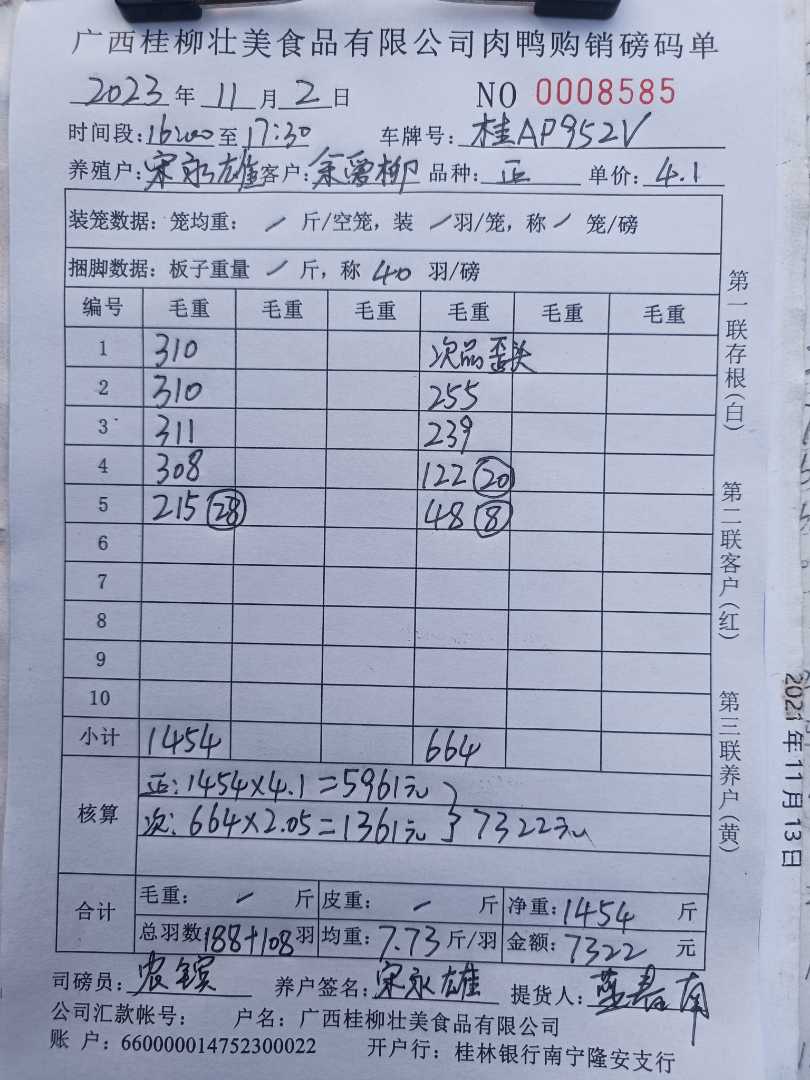 广西桂柳壮美食品有限公司肉鸭购销磅码单
2023年 11月 2日 NO 0008585
时间段:16:00至17:30 车牌号:桂AP952V
养殖户:宋永雄 客户:余爱柳 品种:正 单价:4.1
装笼数据:笼均重: / 斤/空笼,装 / 羽/笼,称 / 笼/磅
捆脚数据:板子重量 / 斤,称 40 羽/磅
编号 毛重 毛重 毛重 毛重 毛重 毛重
1 310 次品歪头
2 310 255
3 311 239
4 308 122 20
5 215 28 48 8
6
7
8
9
10
小计 1454 664
核算
正:1454×4.1=5961元
次:664×2.05=1361元 } 7322元
合计
毛重: - 斤 皮重: - 斤 净重:1454 斤
总羽数188+108羽 均重:7.73斤/羽 金额:7322 元
司磅员:农镔 养户签名:宋永雄 提货人:
公司汇款帐号: 户名:广西桂柳壮美食品有限公司
账 户:660000014752300022 开户行:桂林银行南宁隆安支行
第一联存根(白)
第二联客户(红)
第三联养户(黄)
2021年11月13日